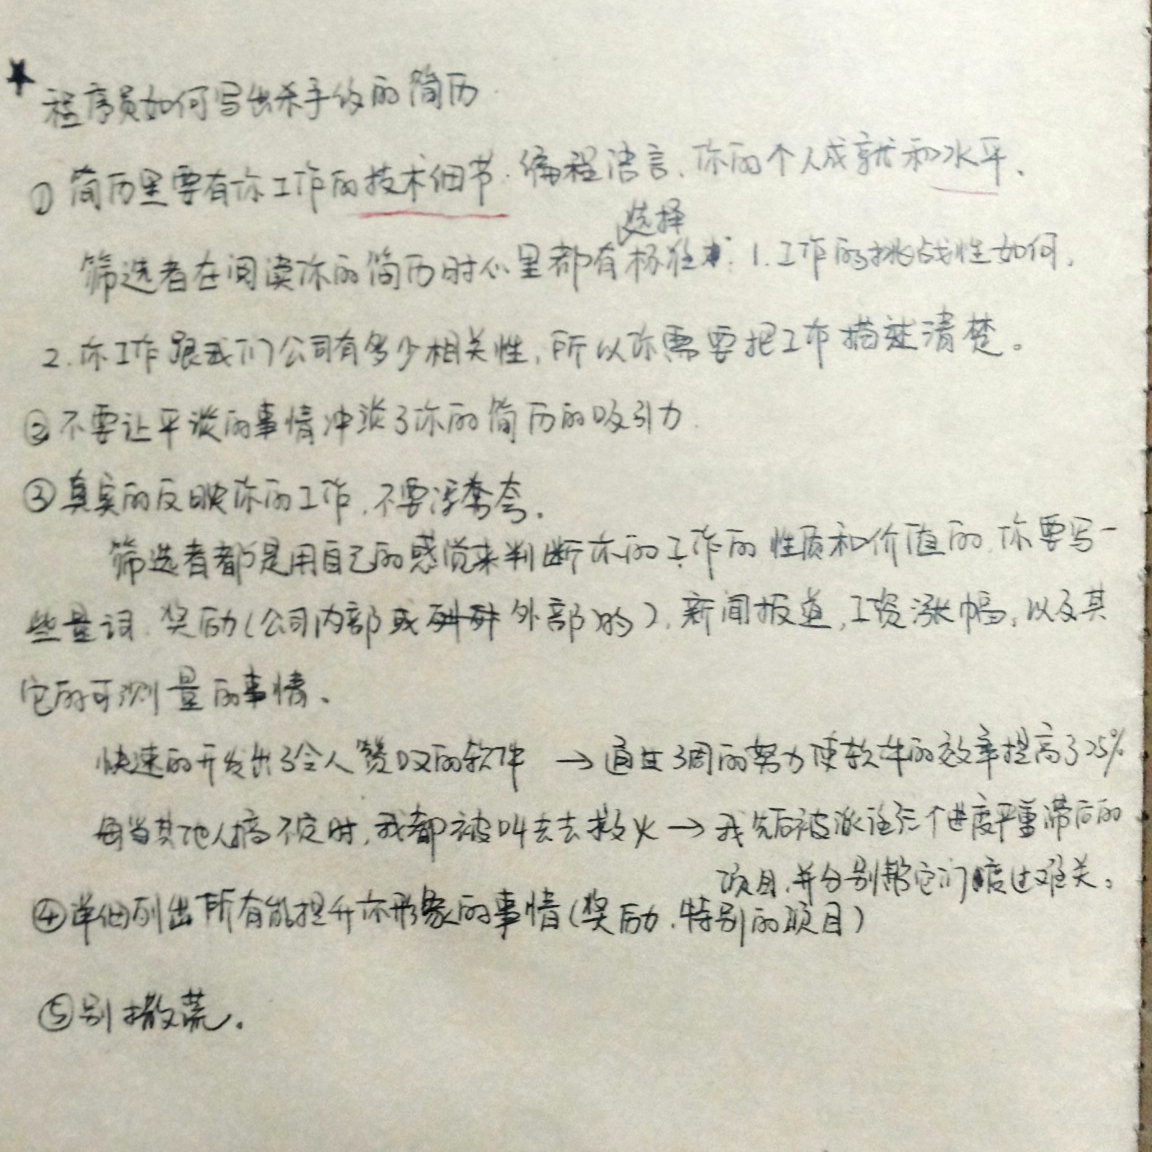 ★程序员如何写出杀手级的简历
① 简历里要有你工作的技术细节.编程语言、你的个人成就和水平、
选择
筛选者在阅读你的简历时心里都有标准: 1.工作的挑战性如何,
2.你工作跟我们公司有多少相关性,所以你需要把工作描述清楚。
②不要让平淡的事情冲淡了你的简历的吸引力.
③真实的反映你的工作.不要浮夸.
筛选者都是用自己的感觉来判断你的工作的性质和价值的.你要写一
些量词.奖励(公司内部或外部的),新闻报道,工资涨幅,以及其
它的可测量的事情、
快速的开发出了令人赞叹的软件 → 通过3周的努力使软件的效率提高了25%
每当其他人搞不定时,我都被叫去去救火 → 我先后被派往三个进度严重滞后的
项目.并分别帮它们度过难关。
④详细列出所有能提升你形象的事情(奖励.特别的项目)
⑤别撒谎.